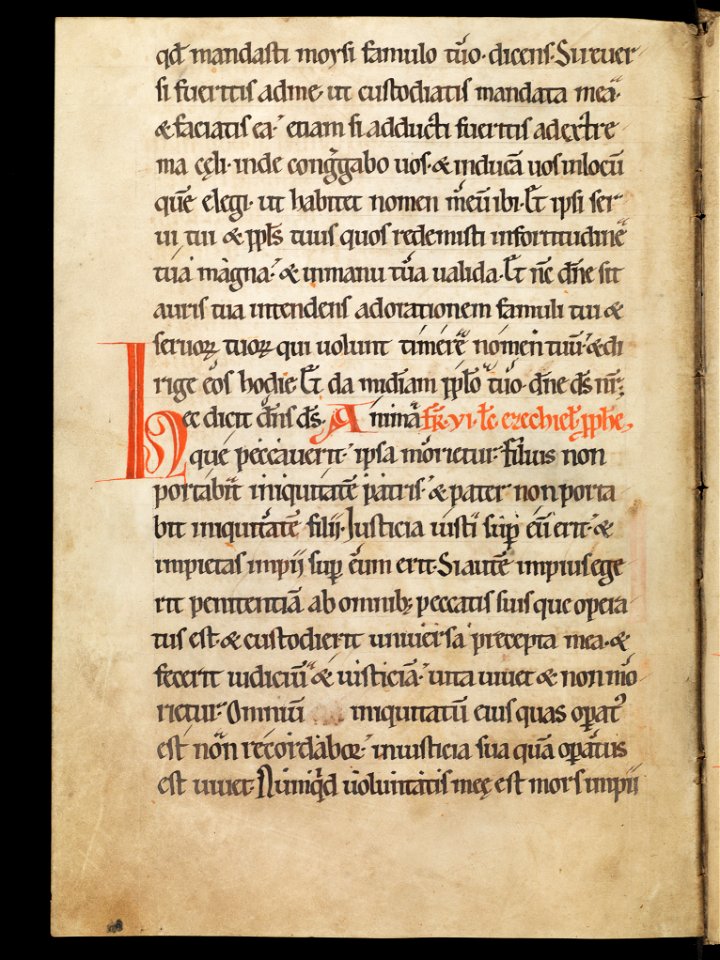 qđ mandasti moysi famulo tůo. dicens. Si reuer
si fueritis ad me. ut custodiatis mandata mea.
& faciatis ea. etiam si adducti fueritis ad extre
ma cęli. inde congͥgabo uos. & inducā uos in locū
quē elegi. ut habitet nomen meū ibi. Et ipsi ser
ui tui & ppłs tuus quos redemisti in fortitudine
tua magna. & in manu tua ualida. Et nc̄ dn̄e sit
auris tua intendens ad orationem famuli tui &
seruoꝝ tuoꝝ qui uolunt timere nomen tuū. & di
rige eos hodie. Et da mīdiam ppło tuo. dn̄e d̄s nr̄;
hec dicit dn̄s d̄s. Anima FR. VI. łe ezechieł pphe.
que peccauerit. ipsa morietur. filius non
portabit iniquitatē patris. & pater non porta
bit iniquitatē filii. Iusticia iusti suꝑ eū erit. &
impietas impii suꝑ eum erit. Si autē impius ege
rit penitentiā ab omnibꝫ peccatis suis que opera
tus est. & custodierit uniuersa precepta mea. &
fecerit iudiciū & iusticiā. uita uiuet & non mo
rietur. Omniū iniquitatū eius quas oꝑatꝰ
est non recordaboꝛ. in iusticia sua quā oꝑatus
est uiuet. Nūquid uoluntatis meę est mors impii